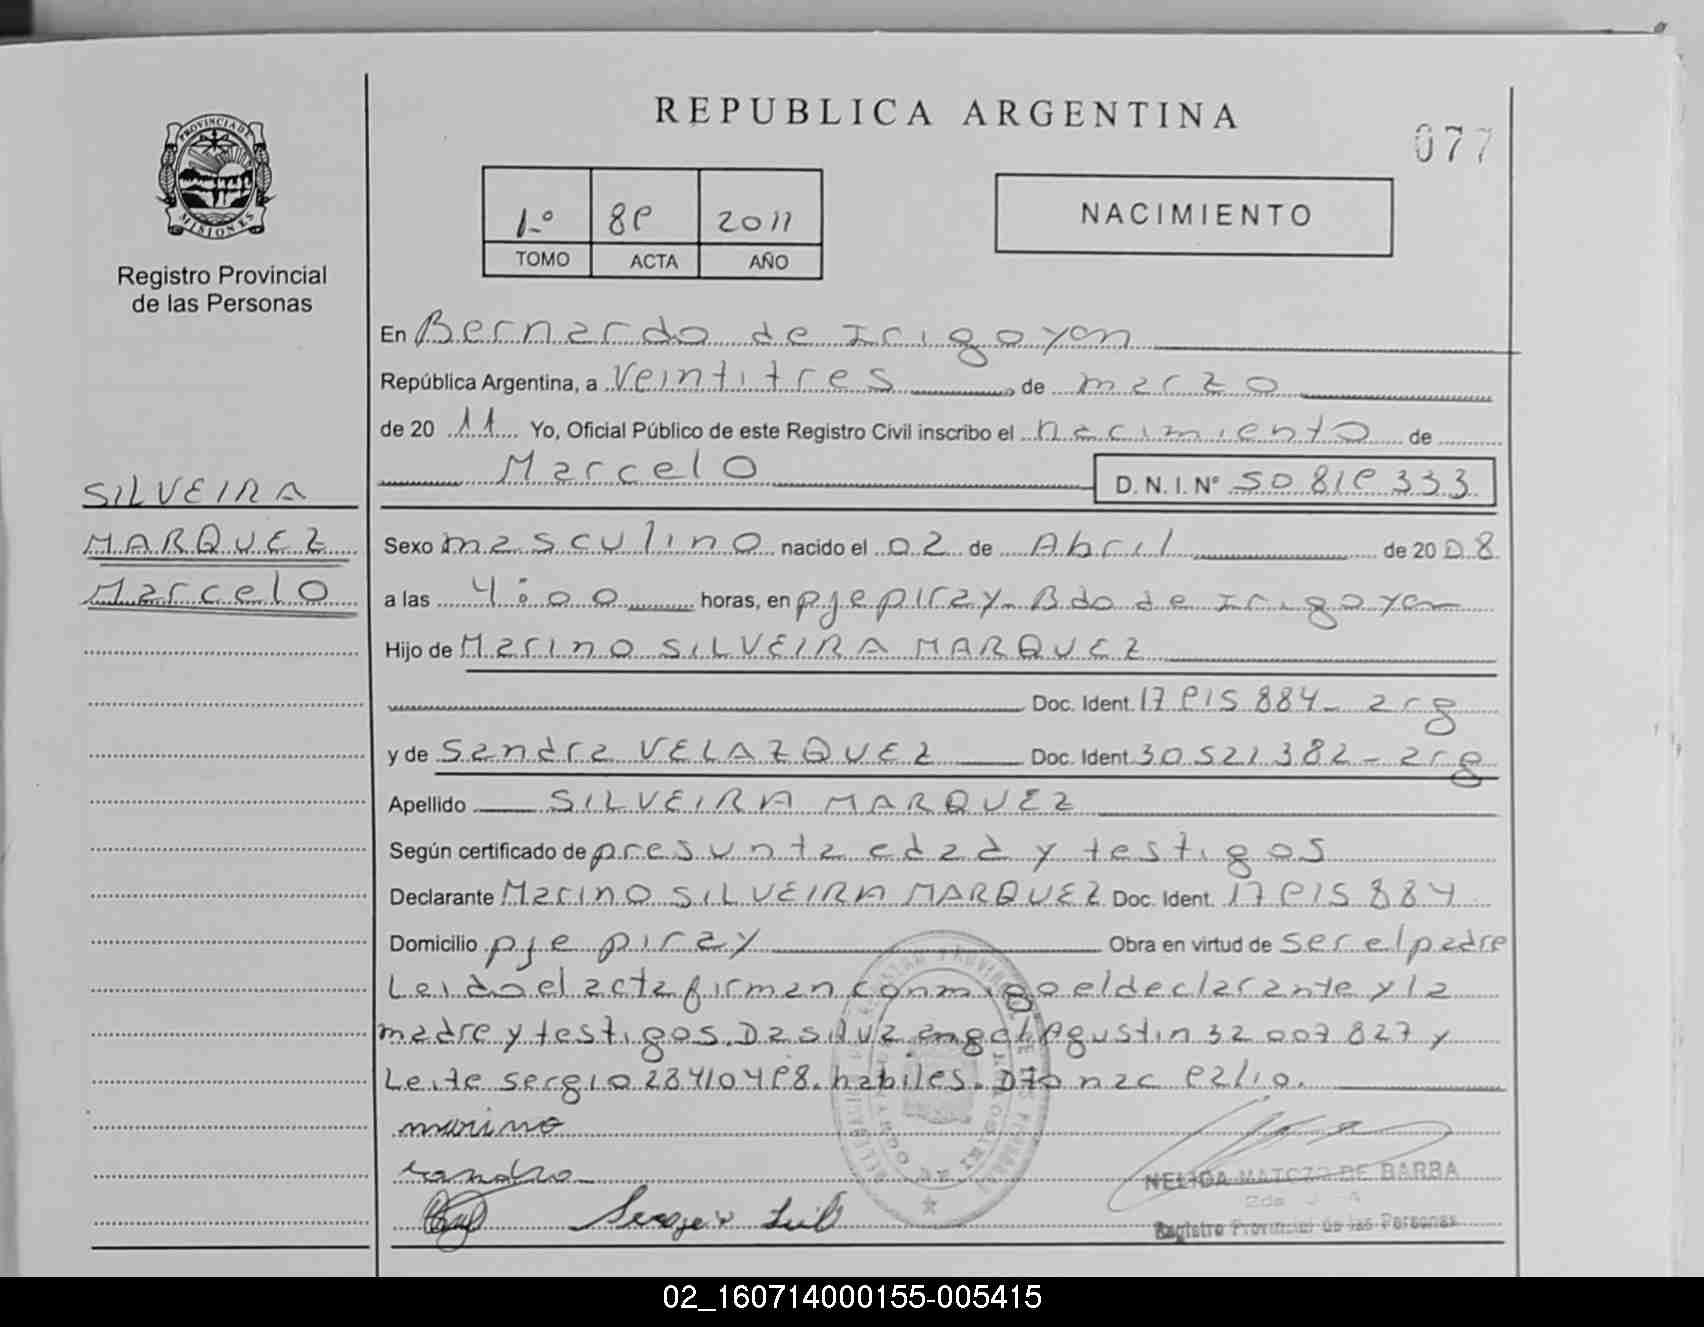 REPUBLICA ARGENTINA
077
PROVINCIA DE MISIONES
Registro Provincial
de las Personas
1º 89 2011
TOMO ACTA AÑO
NACIMIENTO
En Bernardo de Irigoyen
República Argentina, a veintitres, de marzo
de 2011 Yo, Oficial Público de este Registro Civil inscribo el nacimiento de
Marcelo D. N. I. Nº 50 819 333
SILVEIRA
MARQUEZ
Marcelo
Sexo masculino nacido el 02 de Abril de 2008
a las 4:00 horas, en pje piray - Bdo de Irigoyen
Hijo de Marino SILVEIRA MARQUEZ
Doc. Ident. 17 915 884 - arg
y de Sandra VELAZQUEZ Doc. Ident. 30 521 382 - arg
Apellido SILVEIRA MARQUEZ
Según certificado de presunta edad y testigos
Declarante Marino SILVEIRA MARQUEZ Doc. Ident. 17 915 884
Domicilio pje piray Obra en virtud de ser el padre
Leido el acta firman conmigo el declarante y la
madre y testigos. Da silva angel Agustin 32 007 827 y
Leite sergio 28410498. habiles. D70 nac 92/10.
marino
sandra
Sergio Leite
NELIDA MATOZO DE BARBA
Registro Provincial de las Personas
02_160714000155-005415